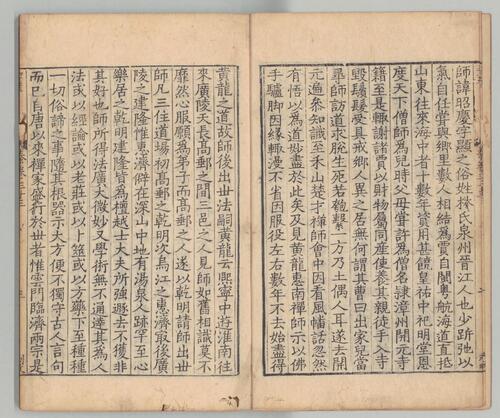 師諱昭慶字顯之俗姓氏泉州晉江人也少跅弛以
氣自任嘗與鄉里數人相結為賈自閩粤航海道直抵
山東往來海中者十數年資用甚饒皇祐中祀明堂恩
度天下僧師為兒時父母嘗許為僧名隸漳州開元寺
籍至是輒謝諸賈以財物屬同産使養其親徒手入寺
毀鬚髮受具戒鄉人異之居無何謂其曹曰出家兒當
尋師訪道求脫生死若匏繫一方乃土偶人耳遂去開
元遍參知識至禾山楚才禪師會中因看風幡話忽然
有悟以為道妙盡於此矣及見黃龍惠南禪師示以佛
手驢脚因緣輒漫不省因服役左右數年不去始盡得
黃龍之道故師後出世法嗣黃龍云熙寧中遊淮南往
來廣陵天長高郵之間三邑之人見師如舊相識莫不
靡然心服願為弟子而高郵之人遂以乾明請師出世
師凡三住道場初高郵之乾明次烏江之惠濟最後廣
陵之建隆惟惠濟僻在深山中地有湯泉人跡罕至心
樂居之乾明建隆皆為檀越士大夫所強遯去不獲非
其好也師所得法廣大微妙又學術無不通達其為人
法或以經論或以老莊或以卜筮或以方藥下至種種
一切俗諦之事隨其根器示大方便不獨守古人言句
而已自唐以來禪家盛行於世者惟雲門臨濟兩宗是